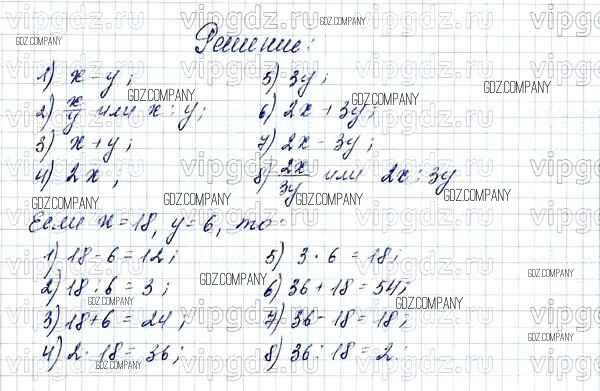 Решение:
1) x - y;
2) x/y или x : y;
3) x + y;
4) 2x;
5) 3y;
6) 2x + 3y;
7) 2x - 3y;
8) 2x/3y или 2x : 3y
Если x = 18, y = 6, то:
1) 18 - 6 = 12;
2) 18 : 6 = 3;
3) 18 + 6 = 24;
4) 2 · 18 = 36;
5) 3 · 6 = 18;
6) 36 + 18 = 54;
7) 36 - 18 = 18;
8) 36 : 18 = 2.
GDZ.COMPANY
vipgdz.ru